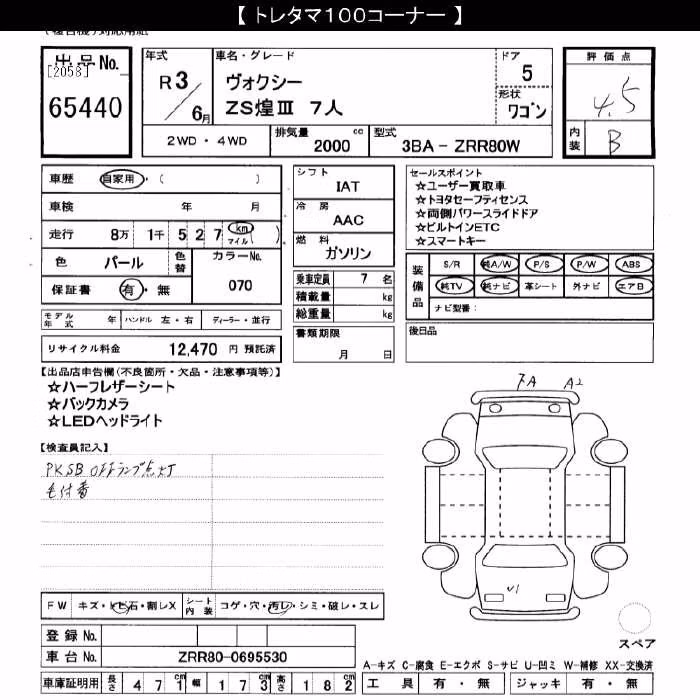 【トレタマ100コーナー】
出品No.
[2058]
65440
年式
R3/6月
車名・グレード
ヴォクシー
ZS煌Ⅲ 7人
ドア
5
形状
ワゴン
評価点
4.5
内装
B
2WD・4WD
排気量
2000 cc
型式
3BA - ZRR80W
車歴
自家用・( )
車検 年 月
走行 8万 1千 5 2 7 km マイル ( )
色 パール
色替
カラーNo.
070
保証書 有・無
モデル年式 年
ハンドル 左・右
ディーラー・並行
リサイクル料金 12,470 円 預託済
シフト
IAT
冷房
AAC
燃料
ガソリン
乗車定員 7 名
積載量 kg
総重量 kg
書類期限
月 日
セールスポイント
☆ユーザー買取車
☆トヨタセーフティセンス
☆両側パワースライドドア
☆ビルトインETC
☆スマートキー
装備品
S/R 純A/W P/S P/W ABS
純TV 純ナビ 革シート 外ナビ エアB
ナビ型番:
後日品
【出品店申告欄(不良箇所・欠品・注意事項等)】
☆ハーフレザーシート
☆バックカメラ
☆LEDヘッドライト
【検査員記入】
PKSB OFFランプ点灯
7A A2
U1
FW キズ・トビ石・割レX
シート内装 コゲ・穴・汚レ・シミ・破レ・スレ
登録No.
車台No. ZRR80-0695530
車庫証明用 長さ 4 7 1 cm 幅 1 7 3 cm 高さ 1 8 2 cm
スペア
A-キズ C-腐食 E-エクボ S-サビ U-凹ミ W-補修 XX-交換済
工具 有・無 ジャッキ 有・無